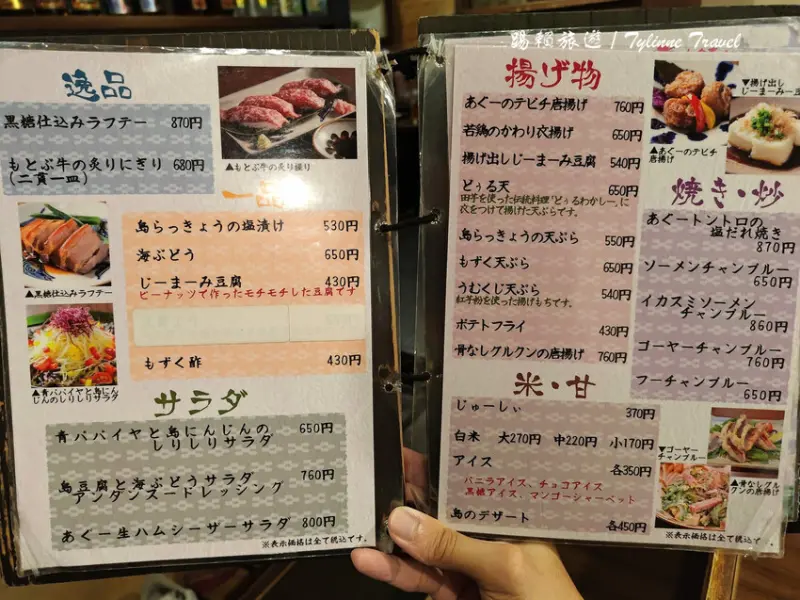 踢賴旅遊 | Tylinne Travel
逸品
黒糖仕込みラフテー 870円
もとぶ牛の炙りにぎり 680円
(二貫一皿)
▲もとぶ牛の炙り握り
▲黒糖仕込みラフテー
▲青パパイヤと島に
んじんのしりしりサラダ
一品
島らっきょうの塩漬け 530円
海ぶどう 650円
じーまーみ豆腐 430円
ピーナッツで作ったモチモチした豆腐です
もずく酢 430円
サラダ
青パパイヤと島にんじんの
しりしりサラダ 650円
島豆腐と海ぶどうサラダ 760円
アンダンスードレッシング
あぐー生ハムシーザーサラダ 800円
※表示価格は全て税込です。
揚げ物
あぐーのテビチ唐揚げ 760円
若鶏のかわり衣揚げ 650円
揚げ出しじーまーみ豆腐 540円
どぅる天 650円
田芋を使った伝統料理「どぅるわかしー」に
衣をつけて揚げた天ぷらです。
島らっきょうの天ぷら 550円
もずく天ぷら 650円
うむくじ天ぷら 540円
紅芋粉を使った揚げもちです。
ポテトフライ 430円
骨なしグルクンの唐揚げ 760円
米・甘
じゅーしぃ 370円
白米 大270円 中220円 小170円
アイス 各350円
バニラアイス、チョコアイス
黒糖アイス、マンゴーシャーベット
島のデザート 各450円
▲あぐーのテビチ
唐揚げ
▼揚げ出し
じーまーみー豆
焼き・炒
あぐートントロの
塩だれ焼き
870円
ソーメンチャンプルー
650円
イカスミソーメン
チャンプルー
860円
ゴーヤーチャンプルー
760円
フーチャンプルー
650円
▼ゴーヤー
チャンプルー
▲骨なしグル
クンの唐揚げ
※表示価格は全て税込です。